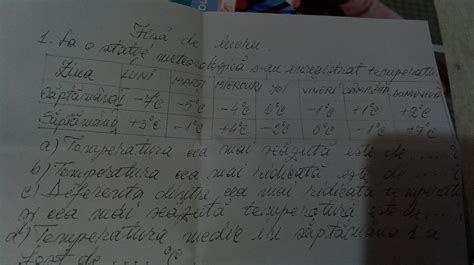 Fișă de lucru
1. La o stație meteorologică s-au înregistrat temperatu
Ziua LUNI MARȚI MIERCURI JOI VINERI SÂMBĂTĂ DUMINICĂ
Săptămâna 1 -7°C -5°C -4°C 0°C -1°C +1°C +2°C
Săptămâna +3°C -1°C +4°C -2°C 0°C -1°C
a) Temperatura cea mai scăzută este de .... °C
b) Temperatura cea mai ridicată este de ....
c) Diferența dintre cea mai ridicată temperatu
și cea mai scăzută temperatură este de ...
d) Temperatura medie în săptămâna 1 a
fost de .... °C